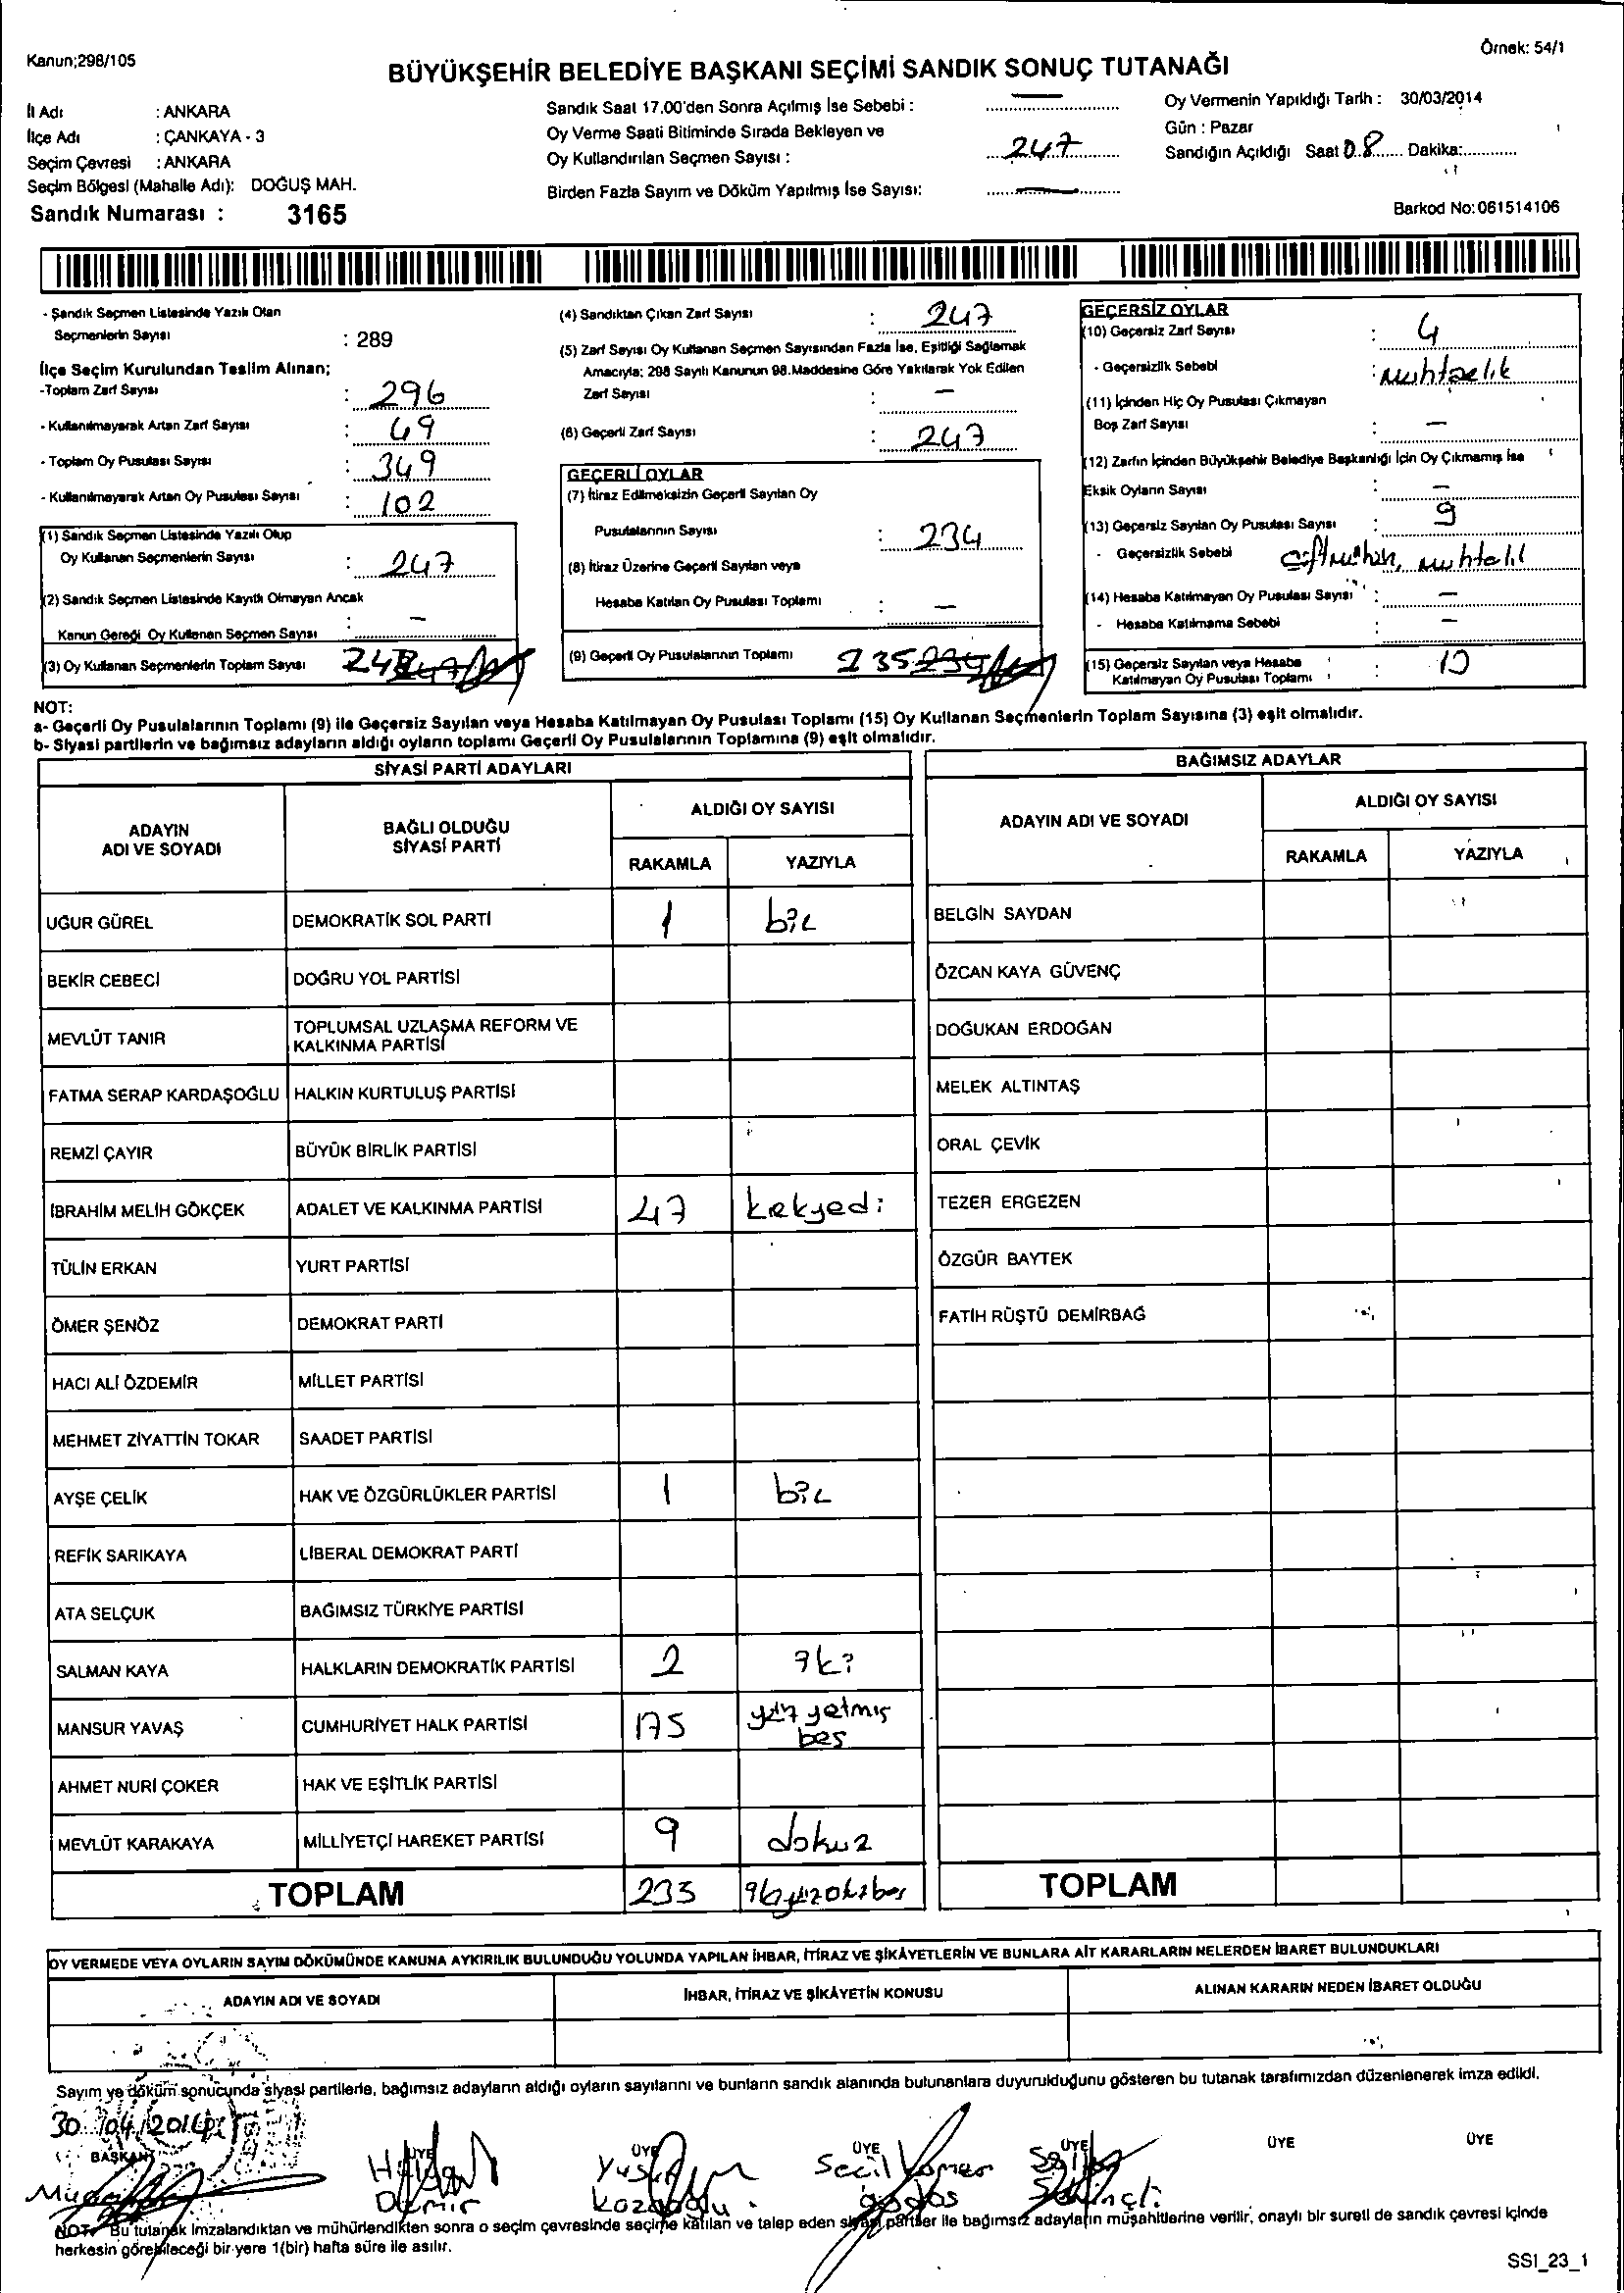 Kanun;298/105
Örnek: 54/1
BÜYÜKŞEHİR BELEDİYE BAŞKANI SEÇİMİ SANDIK SONUÇ TUTANAĞI
İl Adı : ANKARA
İlçe Adı : ÇANKAYA - 3
Seçim Çevresi : ANKARA
Seçim Bölgesi (Mahalle Adı): DOĞUŞ MAH.
Sandık Numarası : 3165
Sandık Saat 17.00'den Sonra Açılmış İse Sebebi : —
Oy Verme Saati Bitiminde Sırada Bekleyen ve
Oy Kullandırılan Seçmen Sayısı : 247
Birden Fazla Sayım ve Döküm Yapılmış İse Sayısı: —
Oy Vermenin Yapıldığı Tarih : 30/03/2014
Gün : Pazar
Sandığın Açıldığı Saat 08 Dakika:
Barkod No:061514106
- Sandık Seçmen Listesinde Yazılı Olan
Seçmenlerin Sayısı : 289
İlçe Seçim Kurulundan Teslim Alınan;
-Toplam Zarf Sayısı : 296
- Kullanılmayarak Artan Zarf Sayısı : 49
- Toplam Oy Pusulası Sayısı : 349
- Kullanılmayarak Artan Oy Pusulası Sayısı : 102
(1) Sandık Seçmen Listesinde Yazılı Olup
Oy Kullanan Seçmenlerin Sayısı : 247
(2) Sandık Seçmen Listesinde Kayıtlı Olmayan Ancak
Kanun Gereği Oy Kullanan Seçmen Sayısı : —
(3) Oy Kullanan Seçmenlerin Toplam Sayısı
(4) Sandıktan Çıkan Zarf Sayısı : 247
(5) Zarf Sayısı Oy Kullanan Seçmen Sayısından Fazla İse, Eşitliği Sağlamak
Amacıyla; 298 Sayılı Kanunun 98.Maddesine Göre Yakılarak Yok Edilen
Zarf Sayısı : —
(6) Geçerli Zarf Sayısı : 247
GEÇERLİ OYLAR
(7) İtiraz Edilmeksizin Geçerli Sayılan Oy
Pusulalarının Sayısı : 234
(8) İtiraz Üzerine Geçerli Sayılan veya
Hesaba Katılan Oy Pusulası Toplamı : —
(9) Geçerli Oy Pusulalarının Toplamı 235 234
GEÇERSİZ OYLAR
(10) Geçersiz Zarf Sayısı : 4
- Geçersizlik Sebebi :
(11) İçinden Hiç Oy Pusulası Çıkmayan
Boş Zarf Sayısı : —
(12) Zarfın İçinden Büyükşehir Belediye Başkanlığı İçin Oy Çıkmamış İse
Eksik Oyların Sayısı : —
(13) Geçersiz Sayılan Oy Pusulası Sayısı : 9
- Geçersizlik Sebebi
(14) Hesaba Katılmayan Oy Pusulası Sayısı : —
- Hesaba Katılmama Sebebi : —
(15) Geçersiz Sayılan veya Hesaba
Katılmayan Oy Pusulası Toplamı :
NOT:
a- Geçerli Oy Pusulalarının Toplamı (9) ile Geçersiz Sayılan veya Hesaba Katılmayan Oy Pusulası Toplamı (15) Oy Kullanan Seçmenlerin Toplam Sayısına (3) eşit olmalıdır.
b- Siyasi partilerin ve bağımsız adayların aldığı oyların toplamı Geçerli Oy Pusulalarının Toplamına (9) eşit olmalıdır.
SİYASİ PARTİ ADAYLARI
ADAYIN ADI VE SOYADI
BAĞLI OLDUĞU SİYASİ PARTİ
ALDIĞI OY SAYISI
RAKAMLA YAZIYLA
UĞUR GÜREL DEMOKRATİK SOL PARTİ 1 bir
BEKİR CEBECİ DOĞRU YOL PARTİSİ
MEVLÜT TANIR TOPLUMSAL UZLAŞMA REFORM VE KALKINMA PARTİSİ
FATMA SERAP KARDAŞOĞLU HALKIN KURTULUŞ PARTİSİ
REMZİ ÇAYIR BÜYÜK BİRLİK PARTİSİ
İBRAHİM MELİH GÖKÇEK ADALET VE KALKINMA PARTİSİ 47
TÜLİN ERKAN YURT PARTİSİ
ÖMER ŞENÖZ DEMOKRAT PARTİ
HACI ALİ ÖZDEMİR MİLLET PARTİSİ
MEHMET ZİYATTİN TOKAR SAADET PARTİSİ
AYŞE ÇELİK HAK VE ÖZGÜRLÜKLER PARTİSİ 1 bir
REFİK SARIKAYA LİBERAL DEMOKRAT PARTİ
ATA SELÇUK BAĞIMSIZ TÜRKİYE PARTİSİ
SALMAN KAYA HALKLARIN DEMOKRATİK PARTİSİ 2 iki
MANSUR YAVAŞ CUMHURİYET HALK PARTİSİ 175 yüz yetmiş beş
AHMET NURİ ÇOKER HAK VE EŞİTLİK PARTİSİ
MEVLÜT KARAKAYA MİLLİYETÇİ HAREKET PARTİSİ 9 dokuz
TOPLAM 235
BAĞIMSIZ ADAYLAR
ADAYIN ADI VE SOYADI
ALDIĞI OY SAYISI
RAKAMLA YAZIYLA
BELGİN SAYDAN
ÖZCAN KAYA GÜVENÇ
DOĞUKAN ERDOĞAN
MELEK ALTINTAŞ
ORAL ÇEVİK
TEZER ERGEZEN
ÖZGÜR BAYTEK
FATİH RÜŞTÜ DEMİRBAĞ
TOPLAM
OY VERMEDE VEYA OYLARIN SAYIM DÖKÜMÜNDE KANUNA AYKIRILIK BULUNDUĞU YOLUNDA YAPILAN İHBAR, İTİRAZ VE ŞİKÂYETLERİN VE BUNLARA AİT KARARLARIN NELERDEN İBARET BULUNDUKLARI
ADAYIN ADI VE SOYADI
İHBAR, İTİRAZ VE ŞİKÂYETİN KONUSU
ALINAN KARARIN NEDEN İBARET OLDUĞU
Sayım ve döküm sonucunda siyasi partilerle, bağımsız adayların aldığı oyların sayılarını ve bunların sandık alanında bulunanlara duyurulduğunu gösteren bu tutanak tarafımızdan düzenlenerek imza edildi.
30/04/2014
BAŞKAN ÜYE ÜYE ÜYE ÜYE ÜYE ÜYE
Demir
NOT: Bu tutanak imzalandıktan ve mühürlendikten sonra o seçim çevresinde seçime katılan ve talep eden siyasi partiler ile bağımsız adayların müşahitlerine verilir, onaylı bir sureti de sandık çevresi içinde
herkesin görebileceği bir yere 1(bir) hafta süre ile asılır.
SSI_23_1